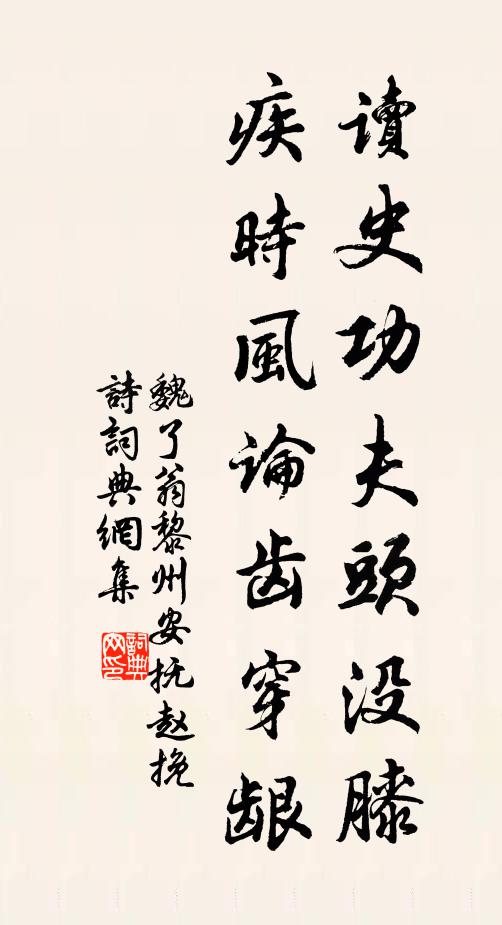 讀史功夫頭没膝
疾時風論齿穿龈
魏了翁黎州安抚赵挽
詩詞典網集
詞典網印